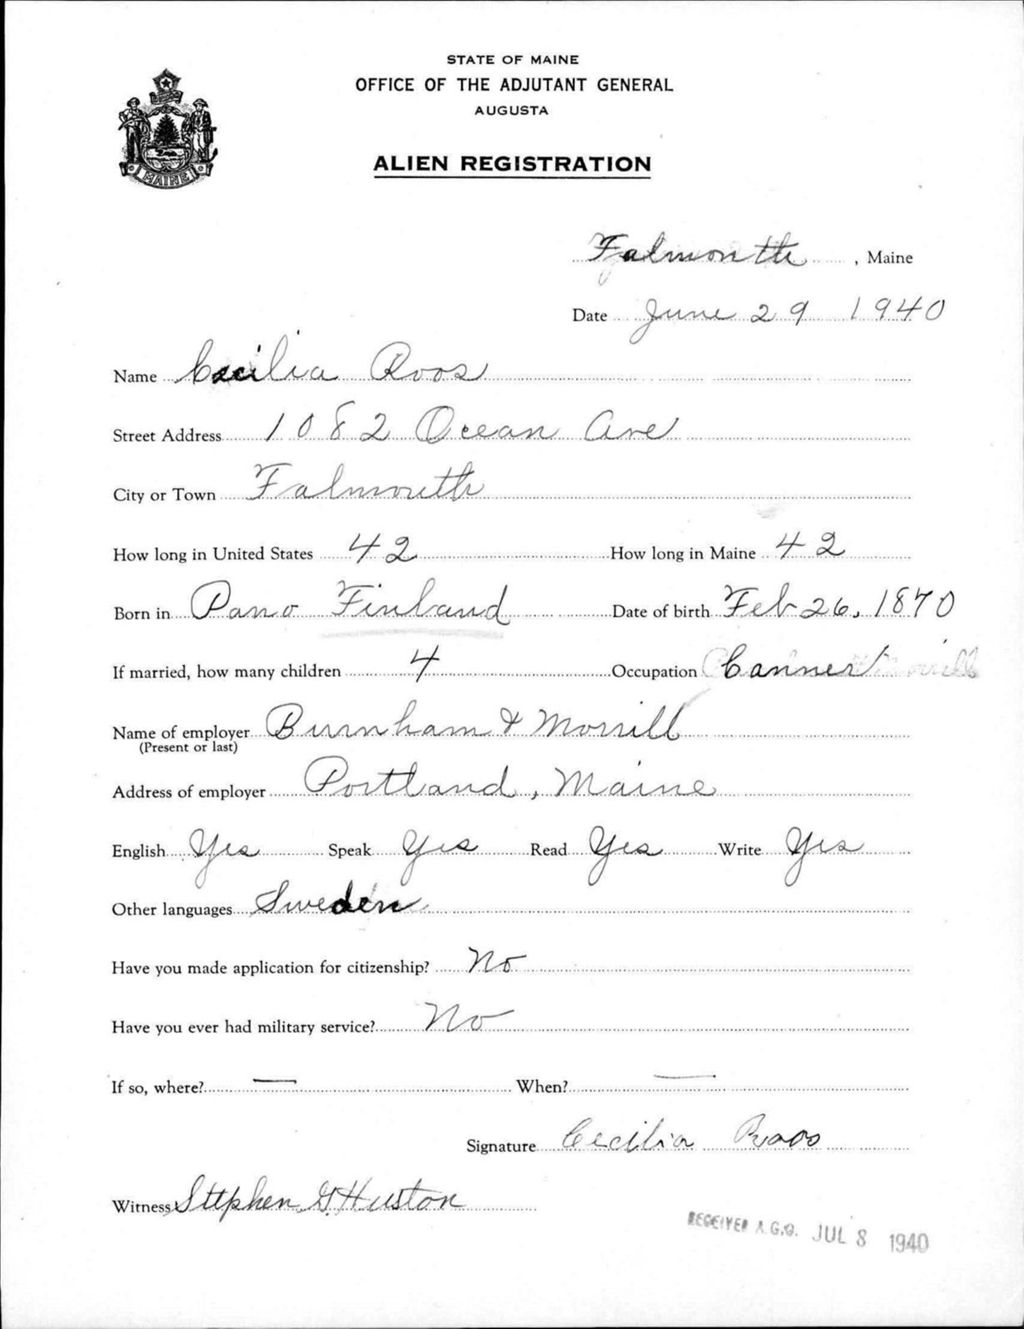 STATE OF MAINE
OFFICE OF THE ADJUTANT GENERAL
AUGUSTA
MAINE
ALIEN REGISTRATION
Falmouth, Maine
Date June 29 1940
Name Cecilia Roos
Street Address 1082 Ocean Ave
City or Town Falmouth
How long in United States 42 How long in Maine 42
Born in Pano Finland Date of birth Feb 26, 1870
If married, how many children 4 Occupation Canner
Name of employer Burnham & Morrill
(Present or last)
Address of employer Portland, Maine
English Yes Speak Yes Read Yes Write Yes
Other languages Sweden
Have you made application for citizenship? No
Have you ever had military service? No
If so, where? — When? —
Signature Cecilia Roos
Witness Stephen G Huston
RECEIVED A.G.O. JUL 8 1940